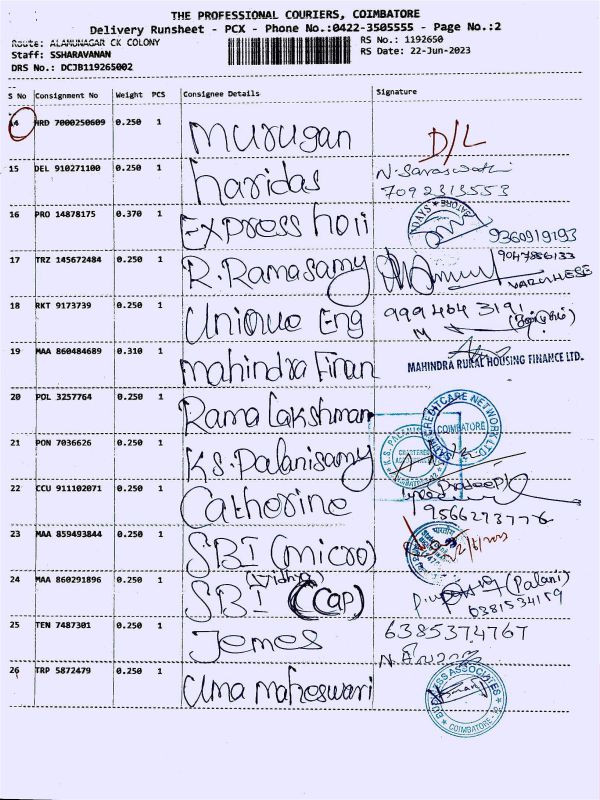 THE PROFESSIONAL COURIERS, COIMBATORE
Delivery Runsheet - PCX - Phone No.:0422-3505555 - Page No.:2
Route: ALAMUNAGAR CK COLONY RS No.: 1192650
Staff: SSHARAVANAN RS Date: 22-Jun-2023
DRS No.: DCJB119265002
S No Consignment No Weight PCS Consignee Details Signature
14 HRD 7000250609 0.250 1 Murugan D/L
15 DEL 910271100 0.250 1 haridas N. Saraswathi
7092313553
16 PRO 14878175 0.370 1 Express hori 9360919193
17 TRZ 145672484 0.250 1 R. Ramasamy 9047856133
VARGHESE
18 RKT 9173739 0.250 1 Unique Eng 999 464 3191
M
19 MAA 860484689 0.310 1 mahindra Finan
MAHINDRA RURAL HOUSING FINANCE LTD.
20 POL 3257764 0.250 1 Rama lakshman
CREDITCARE NETWORK
COIMBATORE
21 PON 7036626 0.250 1 K.S. Palanisamy
K.S. PALANI
CHARTERED
22 CCU 911102071 0.250 1 Catherine
9566273776
23 MAA 859493844 0.250 1 SBI (micro)
24 MAA 860291896 0.250 1 SBI (Cap) (Palani)
(Vidhya)
6381534159
25 TEN 7487301 0.250 1 Jemes 6385374767
26 TRP 5872479 0.250 1 Uma maheswari
ASSOCIATES
COIMBATORE